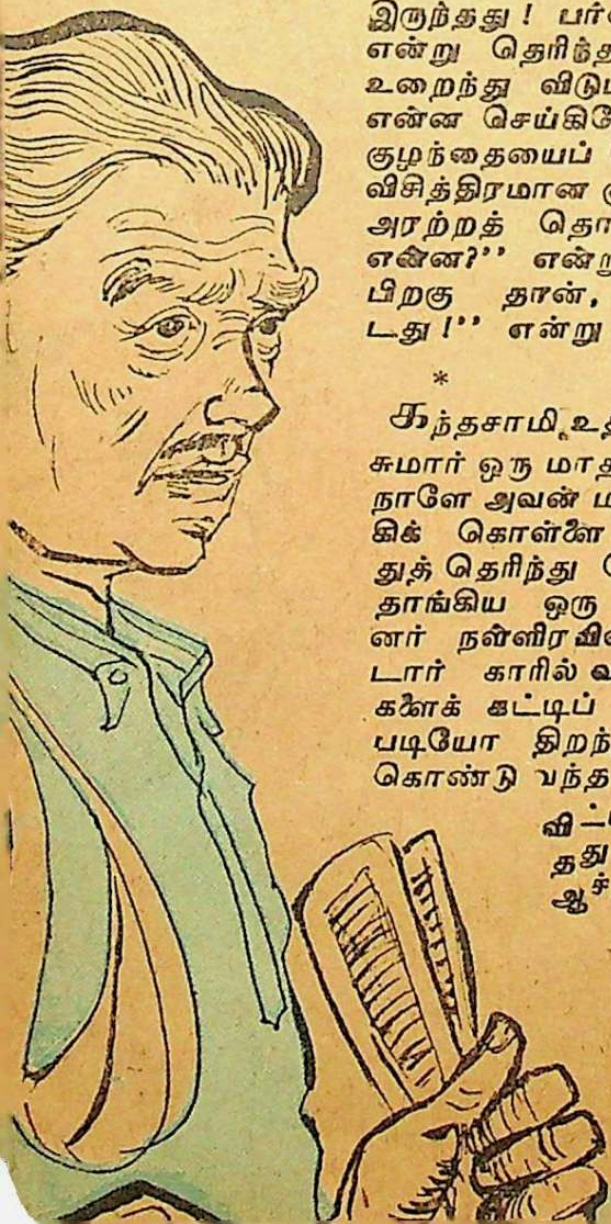 இருந்தது! பர்
என்று தெரிந்த
உறைந்து விடு
என்ன செய்கி
குழந்தையைப்
விசித்திரமான
அரற்றத் தொ
என்ன?’’ என்று
பிறகு தான்,
டது!’’ என்று
*
கந்தசாமி உத
சுமார் ஒரு மாத
நாளே அவன் ம
கிக் கொள்ளை
துத் தெரிந்து
தாங்கிய ஒரு
னர் நள்ளிரவி
டார் காரில் வ
களைக் கட்டிப்
படியோ திறந்
கொண்டு வந்த
தது